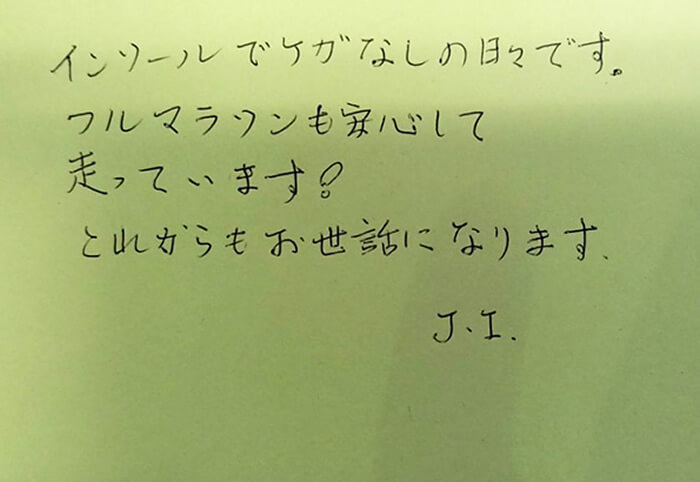 インソールでケガなしの日々です。
フルマラソンも安心して
走っています!
これからもお世話になります.
J.I.